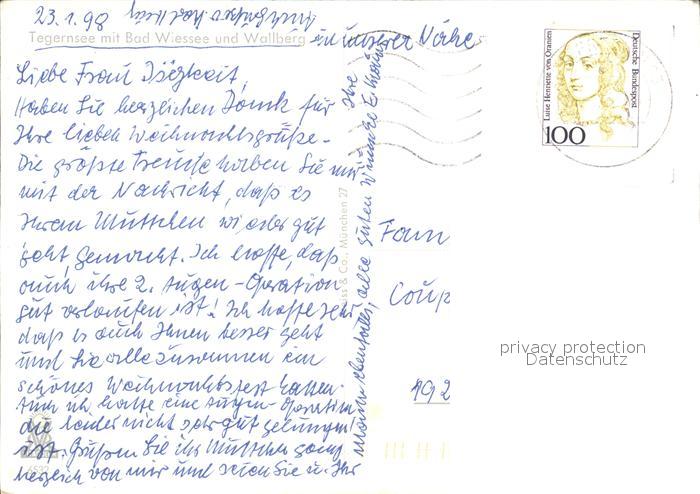 23.1.98
Tegernsee mit Bad Wiessee und Wallberg
in unserer Nähe
Liebe Frau
Haben Sie herzlichen Dank für
Ihre lieben Weihnachtsgrüße.
Die größte Freude haben Sie mir
mit der Nachricht, daß es
Ihrem Muttchen wieder gut
geht, gemacht. Ich hoffe, daß
auch ihre 2. Augen-Operation
gut verlaufen ist! Ich hoffe sehr
daß es auch Ihnen besser geht
und Sie alle zusammen ein
schönes Weihnachtsfest hatten.
Auch ich hatte eine Augen-Operation
die leider nicht sehr gut gelungen
ist. Grüßen Sie Ihr Muttchen ganz
herzlich von mir und seien Sie u. Ihr
Mann ebenfalls, alle guten Wünsche
Ihre
& Co., München 27
Deutsche Bundespost
Luise Henriette von Oranien
100
Fam
Coup
192
privacy protection
Datenschutz